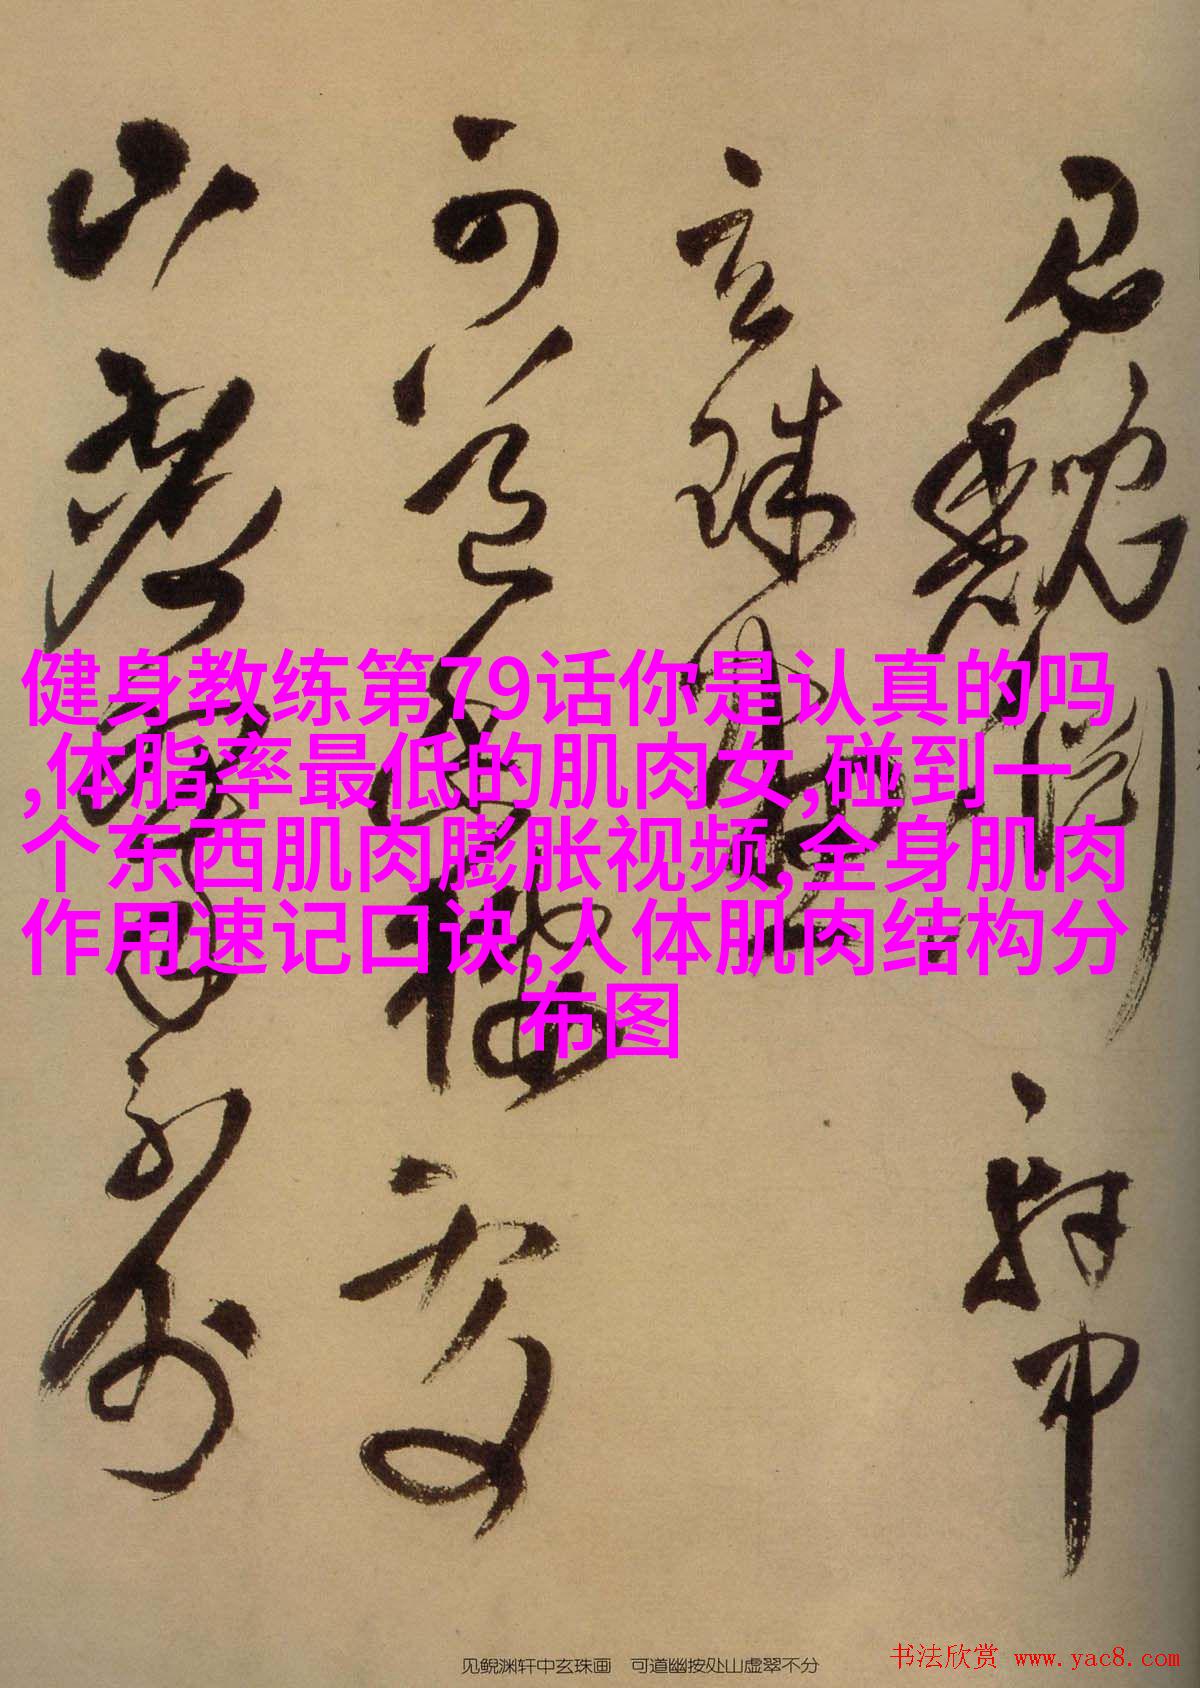 見鯢淵軒中
玄珠畫
可道幽棲處
山虛翠不分
健身教练第79话你是认真的吗
,体脂率最低的肌肉女,碰到一
个东西肌肉膨胀视频,全身肌肉
作用速记口诀,人体肌肉结构分
布图
见鲵渊轩中玄珠画 可道幽按处山虚翠不分
书法欣赏 www.yac8.com